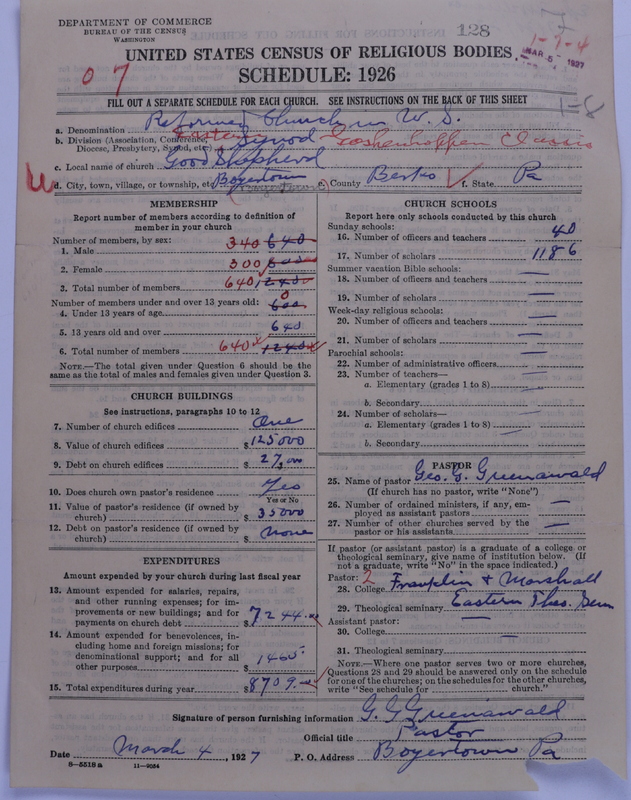 DEPARTMENT OF COMMERCE
BUREAU OF THE CENSUS
WASHINGTON
128
1-7-4
MAR 5 1927
07
UNITED STATES CENSUS OF RELIGIOUS BODIES
SCHEDULE: 1926
FILL OUT A SEPARATE SCHEDULE FOR EACH CHURCH. SEE INSTRUCTIONS ON THE BACK OF THIS SHEET
1-8
a. Denomination Reformed Church in U. S.
b. Division (Association, Conference, Diocese, Presbytery, Synod, etc.) Eastern Synod Goshenhoppen Classis
c. Local name of church Good Shepherd
d. City, town, village, or township, etc. Boyertown (Boyertown) e. County Berks f. State Pa
MEMBERSHIP
Report number of members according to definition of
member in your church
Number of members, by sex:
1. Male 340 640
2. Female 300 600
3. Total number of members 640 1240
Number of members under and over 13 years old:
4. Under 13 years of age 0 600
5. 13 years old and over 640
6. Total number of members 640 1240
NOTE.—The total given under Question 6 should be
same as the total of males and females given under Question 3.
CHURCH BUILDINGS
See instructions, paragraphs 10 to 12
7. Number of church edifices One
8. Value of church edifices $125000
9. Debt on church edifices $27,000
10. Does church own pastor's residence Yes
Yes or No
11. Value of pastor's residence (if owned by
church) $35000
12. Debt on pastor's residence (if owned by
church) $ None
EXPENDITURES
Amount expended by your church during last fiscal year
13. Amount expended for salaries, repairs,
and other running expenses; for im-
provements or new buildings; and for
payments on church debt $7244.00
14. Amount expended for benevolences, in-
cluding home and foreign missions; for
denominational support; and for all
other purposes 1465
15. Total expenditures during year $8709.00
CHURCH SCHOOLS
Report here only schools conducted by this church
Sunday schools:
16. Number of officers and teachers 40
17. Number of scholars 1186
Summer vacation Bible schools:
18. Number of officers and teachers —
19. Number of scholars —
Week-day religious schools:
20. Number of officers and teachers —
21. Number of scholars —
Parochial schools:
22. Number of administrative officers —
23. Number of teachers—
a. Elementary (grades 1 to 8) —
b. Secondary —
24. Number of scholars—
a. Elementary (grades 1 to 8) —
b. Secondary
PASTOR
25. Name of pastor Geo. G. Greenawald
(If church has no pastor, write "None")
26. Number of ordained ministers, if any, em-
ployed as assistant pastors —
27. Number of other churches served by the
pastor or his assistants —
If pastor (or assistant pastor) is a graduate of a college or
theological seminary, give name of institution below. (If
not a graduate, write "No" in the space indicated.)
Pastor: 2
28. College Franklin & Marshall
29. Theological seminary Eastern Theo. Sem
Assistant pastor:
30. College —
31. Theological seminary —
NOTE.—Where one pastor serves two or more churches,
Questions 28 and 29 should be answered only on the schedule
for one of the churches; on the schedules for the other churches,
write "See schedule for church."
Signature of person furnishing information G. G. Greenawald
Official title Pastor
Date March 4, 1927 P. O. Address Boyertown Pa
8—5518 a 11—9024